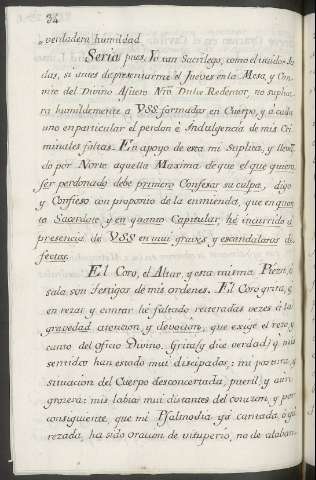 34
verdadera humildad.
Seria pues, Yo tan Sacrilego, como el traidor Ju-
das, si antes de presentarme el Jueves en la Mesa, y Con-
vite del Divino Asuero Nrô. Dulce Redemtor, no suplica-
ra humildemente a VSS formados en Cuerpo, y a cada
uno en particular el perdon è Indulgencia de mis Cri-
minales faltas. En apoyo de esta mi Suplica, y llevan-
do por Norte aquella Maxima de que el que quiere
ser perdonado debe primero Confesar su culpa, digo
y Confieso con proposito de la enmienda, que en quan-
to Sacerdote y en quanto Capitular, hé incurrido à
presencia de VSS en mui graves y escandalosos de-
fectos.
El Coro, el Altar, y esta misma Pieza, ò
sala son testigos de mis ordenes. El Coro grita, q̃
en rezar y cantar hé faltado reiteradas veces à la
gravedad atencion y devocion, que exige el rezo, y
canto del oficio Divino. Grita (y dice verdad) q̃ mis
sentidos han estado mui disipados; mi postura, y
situacion del Cuerpo desconcertada, pueril, y aun
grosera: mis labios mui distantes del corazon y por
consiguiente, que mi Psalmodia yá cantada, o yá
rezada, ha sido oracion de vituperio, no de alaban-